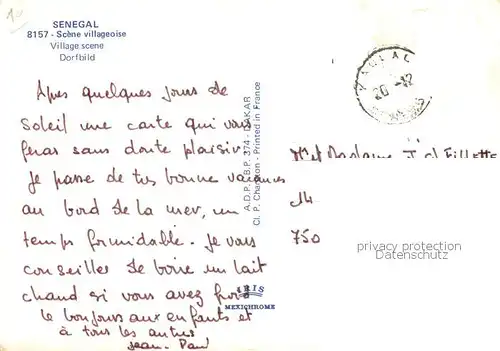 SENEGAL
8157 - Scène villageoise
Village scene
Dorfbild
Apres quelques jours de
Soleil une carte qui vous
feras sans doute plaisir.
Je passe de tres bonne vacances
au bord de la mer, un
temps formidable. Je vous
conseilles de boire un lait
chaud si vous avez froid
le bonjours aux enfants et
à tous les autres
Jean-Paul
A.D.P. - B.P. 374 - DAKAR
Cl. P. Chareton - Printed in France
IRIS
MEXICHROME
20 -12
Mr et Madame
14
750
privacy protection
Datenschutz